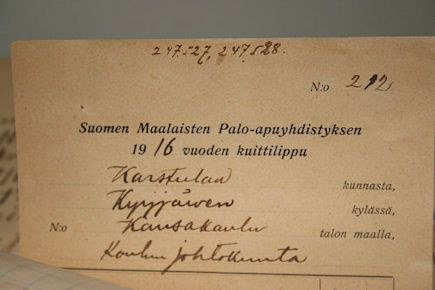 247.527, 247.528.
N:o 212
Suomen Maalaisten Palo-apuyhdistyksen
1916 vuoden kuittilippu
Karstulan kunnasta,
Kyyjäwen kylässä,
N:o Kansakoulu talon maalla,
Koulun johtokunta